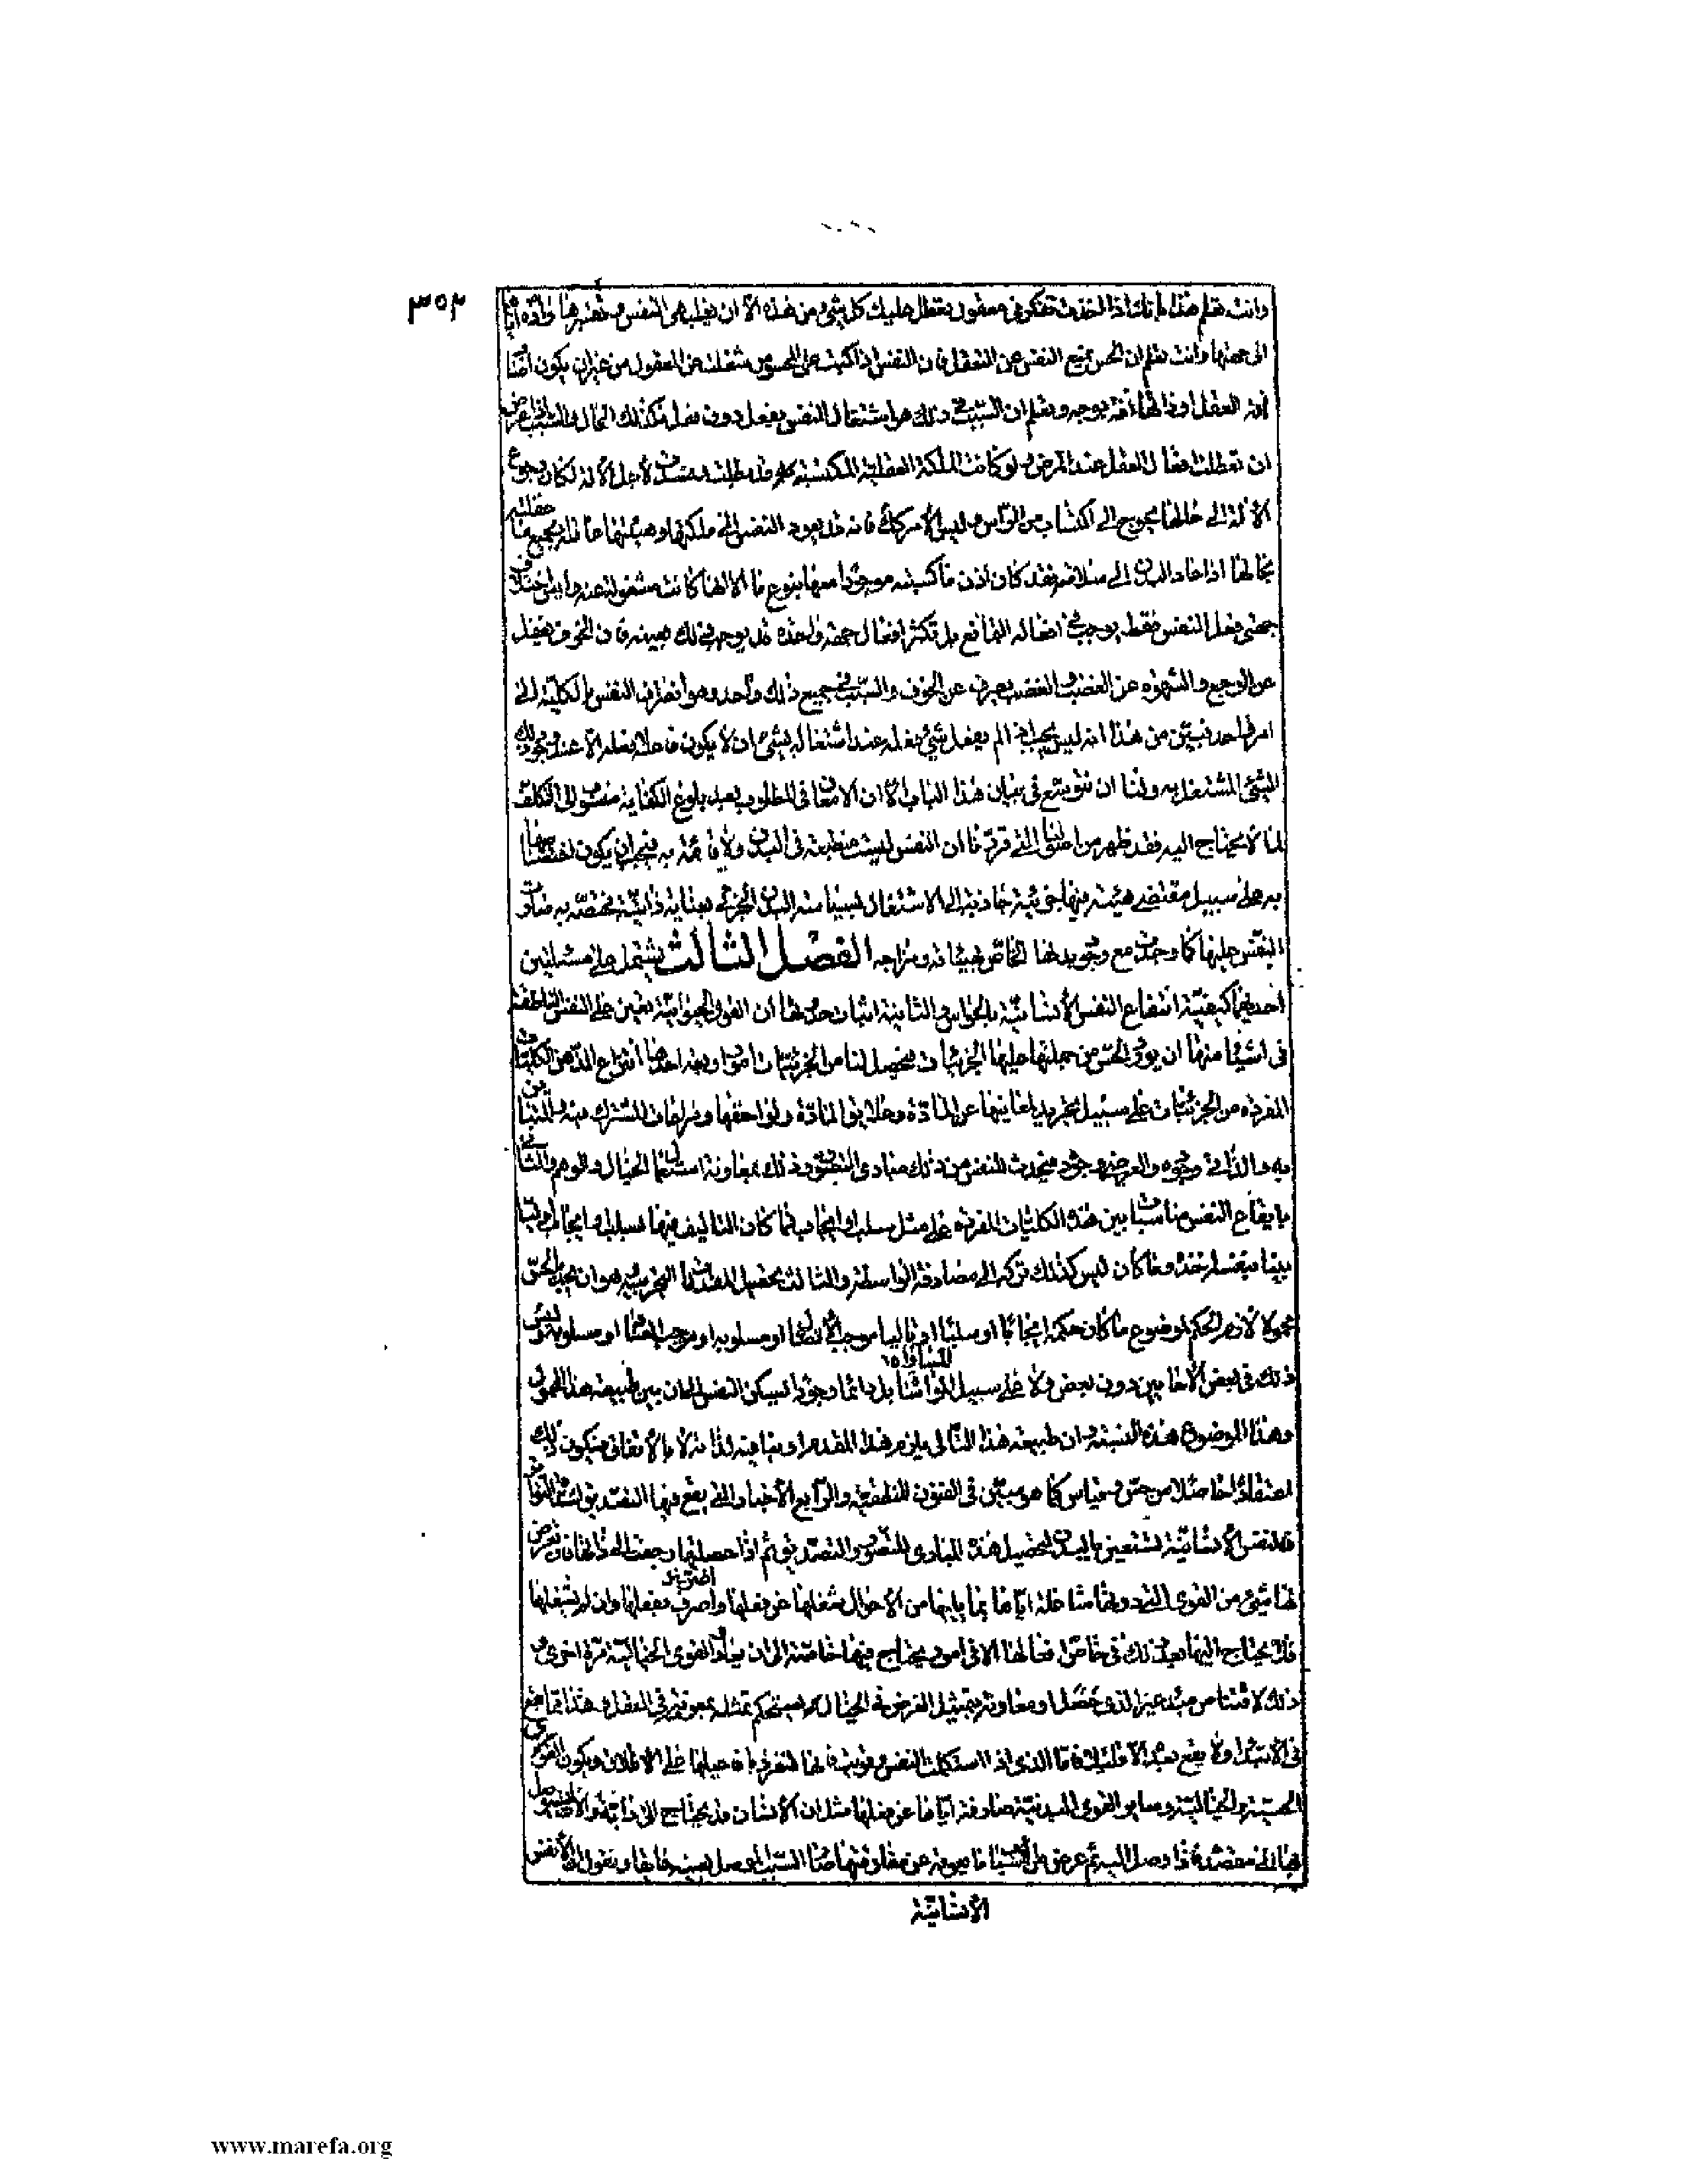 ٣٥٢
وانت تعلم هذا بانك اذا اخذت تفكر في معقول تعطل عليك كل شيء من هذه الا ان تغلب هي النفس و تقسرها رادة اياها
الى جهتها وانت تعلم ان الحس يمنع النفس عن التعقل فان النفس اذا اكبت على المحسوس شغلت عن المعقول من غير ان يكون اصاب
آلة العقل او ذاتها آفة بوجه وتعلم ان السبب في ذلك هو اشتغال النفس بفعل دون فعل فكذلك الحال والسبب اذا عرض
ان تعطلت افعال العقل عند المرض ولو كانت الملكة العقلية المكتسبة قد بطلت وفسدت لاجل الآلة لكان رجوع
الآلة الى حالها يحوج الى اكتساب من الراس وليس الامر كذلك فانه قد يعود النفس الى ملكتها وهيئتها عاقلة بجميع ما عقلته
بحالها اذا عاد البدن الى سلامته فقد كان اذن ما كسبته موجودا معها بنوع ما الا انها كانت مشغولة عنه وليس اختلاف
جهتي فعل النفس فقط يوجب في افعاله التمانع بل تكثر افعال جهة واحدة قد يوجب ذلك بعينه فان الخوف يغفل
عن الوجع والشهوة عن الغضب والغضب يصرف عن الخوف والسبب في جميع ذلك واحد وهو انصراف النفس بالكلية الى
امر واحد فبين من هذا انه ليس يجب اذا لم يفعل شيء فعله عند اشتغاله بشيء ان لا يكون فاعلا فعله الا عند وجود ذلك
الشيء المشتغل به ولنا ان نتوسع في بيان هذا الباب الا ان الامعان في المطلوب بعد بلوغ الكفاية منسوب الى التكلف
لما لا يحتاج اليه فقد ظهر من اصولنا التي قررنا ان النفس ليست منطبعة في البدن ولا قائمة به فيجب ان يكون اختصاصها
به على سبيل مقتضى هيئة فيها جزئية جاذبة الى الاشتغال بسياسة البدن الجزئي بعناية ذاتية مختصة به صارت
النفس عليها كما وجدت مع وجود بدنها الخاص بهيئاته ومزاجه الفصل الثالث يشتمل على مسئلتين
احديهما كيفية انتفاع النفس الانسانية بالحواس والثانية اثبات حدوثها ان القوى الحيوانية تعين على النفس الناطقة
في اشياء منها ان يورد الحس من جملتها عليها الجزئيات فيحصل لنا من الجزئيات امور اربعة احدها انتزاع الذهن الكليات
المفردة من الجزئيات على سبيل تجريد لمعانيها عن المادة وعلائق المادة ولواحقها ومراعات المشترك فيه والمتباين
به والذاتي وجوده والعرضي وجوده فيحدث للنفس من ذلك مبادي التصور وذلك بمعاونة استعمالها الخيال والوهم والثاني
بايقاع النفس مناسبات بين هذه الكليات المفردة على مثل سلب او ايجاب فما كان التاليف فيها بسلب وايجاب ذاتيا
بينا بنفسه اخذه وما كان ليس كذلك تركه الى مصادفة الواسطة والثالث تحصيل المقدمات التجربية وهو ان يجد بالحس
محمولا لازم الحكم لموضوع ما كان حكمه ايجابا او سلبا او تاليا موجب الاتصال او مسلوبه او موجب العناد او مسلوبه وليس
ذلك في بعض الاحايين دون بعض ولا على سبيل المساواة بل دائما وجودا ليسكن النفس الى ان بين طبيعة هذا المحمول
وهذا الموضوع هذه النسبة وان طبيعة هذا التالي يلزم هذا المقدم او ينافيه لذاته لا بالاتفاق فيكون ذلك
اعتقادا حاصلا من حس وقياس كما هو مبين في الفنون المنطقية والرابع الاخبار التي يقع فيها التصديق لشدة التواتر
فالنفس الانسانية تستعين بالبدن لتحصيل هذه المبادي للتصور والتصديق ثم اذا حصلتها رجعت الى ذاتها فان تعرض
لها شيء من القوى التي دونها شاغلة اياها بما يليها من الاحوال شغلتها عن فعلها واضرت بفعلها وان لم تشغلها
فلا يحتاج اليها بعد ذلك في خاص افعالها الا في امور يحتاج فيها خاصة الى ان يعاود القوى الخيالية مرة اخرى
ذلك لاقتناص مبدء غير الذي حصل او معاونة بتمثيل الغرض في الخيال ليستحكم تمثله بمعونته في العقل وهذا مما يقع
في الابتداء ولا يقع بعده الا قليلا فاما الذي اذا استكملت النفس وقويت فانها تنفرد بافاعيلها على الاطلاق ويكون القوى
الحسية والخيالية وساير القوى البدنية صارفة اياها عن فعلها مثل ان الانسان قد يحتاج الى دابة وآلات ليتوصل
بها الى مقصد فاذا وصل اليه ثم عرض من الاسباب ما يعوقه عن مفارقتها صار السبب الموصل بعينه عايقا ونقول ان الانفس
الانسانية
www.marefa.org